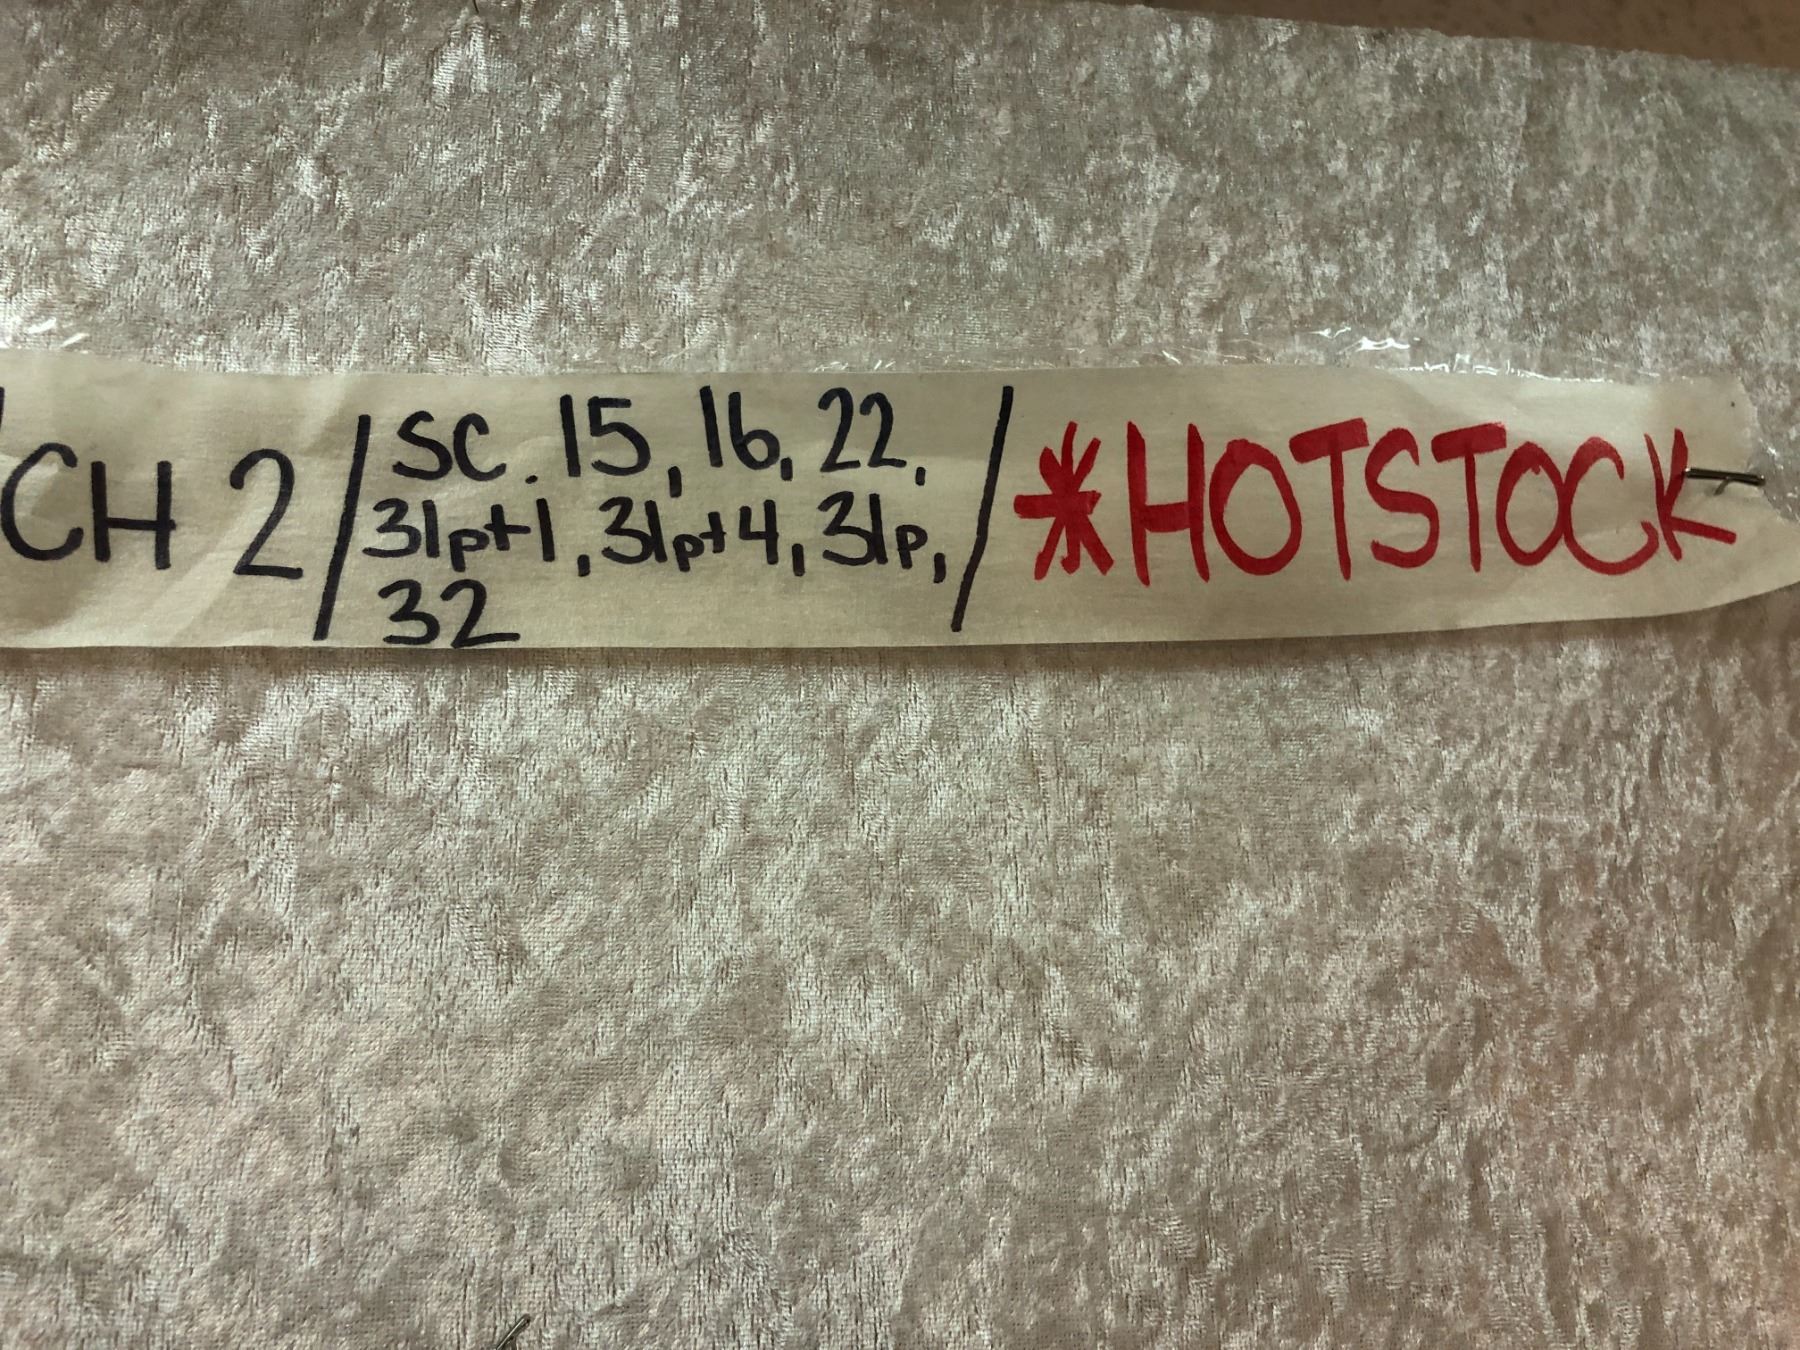 CH 2 / SC. 15, 16, 22,
31pt1, 31pt4, 31p,
32
/ *HOTSTOCK